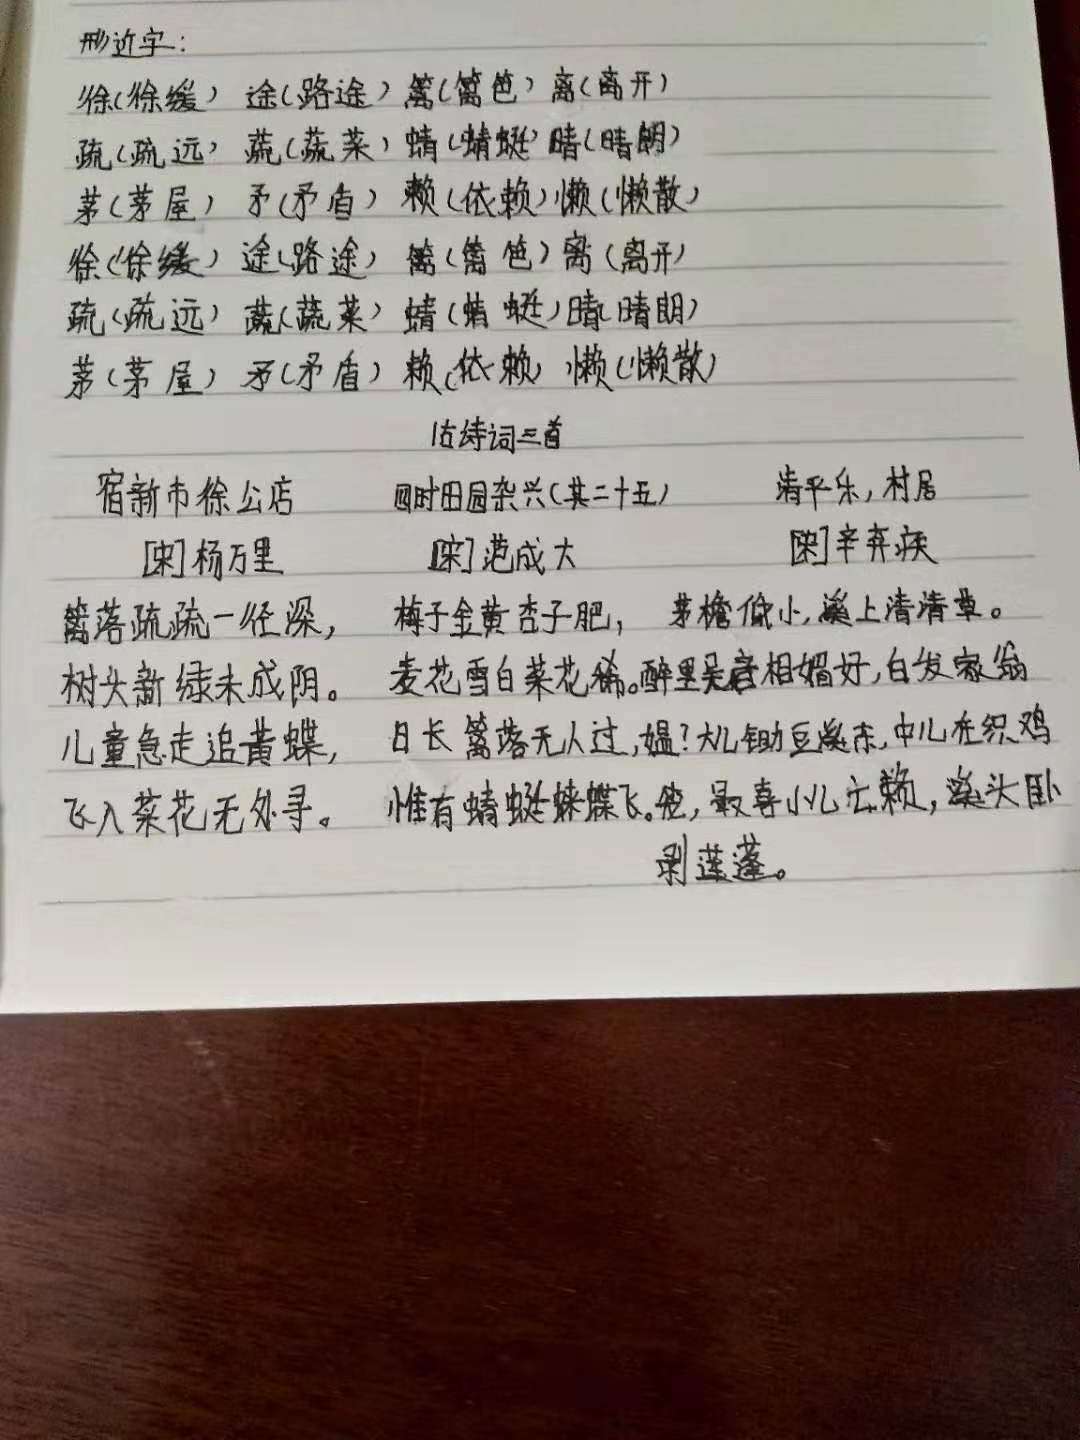 形近字:
徐(徐缓) 途(路途) 篱(篱笆) 离(离开)
疏(疏远) 蔬(蔬菜) 蜻(蜻蜓) 晴(晴朗)
茅(茅屋) 矛(矛盾) 赖(依赖) 懒(懒散)
徐(徐缓) 途(路途) 篱(篱笆) 离(离开)
疏(疏远) 蔬(蔬菜) 蜻(蜻蜓) 晴(晴朗)
茅(茅屋) 矛(矛盾) 赖(依赖) 懒(懒散)
古诗词三首
宿新市徐公店 四时田园杂兴(其二十五) 清平乐,村居
[宋]杨万里 [宋]范成大 [宋]辛弃疾
篱落疏疏一径深, 梅子金黄杏子肥, 茅檐低小,溪上清清草。
树头新绿未成阴。 麦花雪白菜花稀。醉里吴音相媚好,白发家翁
儿童急走追黄蝶, 日长篱落无人过,媪?大儿锄豆溪东,中儿在织鸡
飞入菜花无处寻。 惟有蜻蜓蛱蝶飞。笼,最喜小儿亡赖,溪头卧
剥莲蓬。